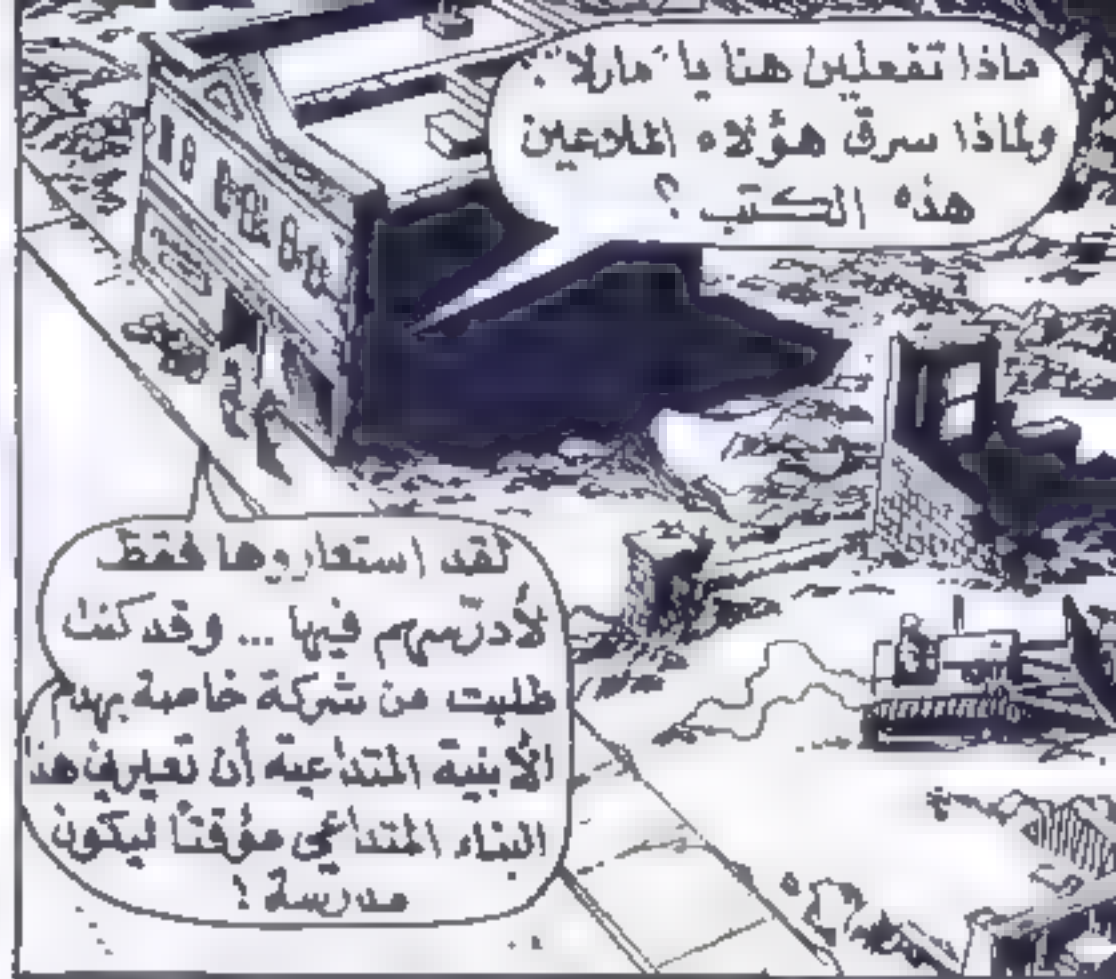 ماذا تفعلين هنا يا "مارلا"؟
ولماذا سرق هؤلاء الملاعين
هذه الكتب ؟
لقد استعاروها فقط
لأدرّسهم فيها ... وقد كنت
طلبت من شركة خاصة بهدم
الأبنية المتداعية أن تعيرني هذا
البناء المتداعي مؤقتاً ليكون
مدرسة !